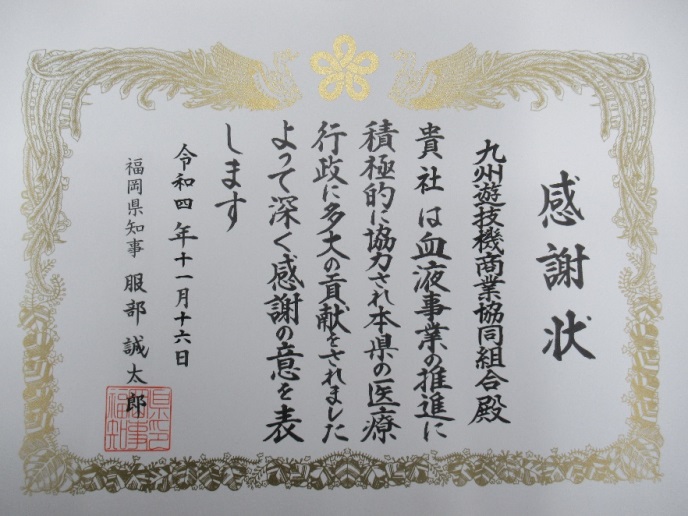 感謝状
九州遊技機商業協同組合殿
貴社は血液事業の推進に
積極的に協力され本県の医療
行政に多大の貢献をされました
よって深く感謝の意を表
します
令和四年十一月十六日
福岡県知事 服部誠太郎